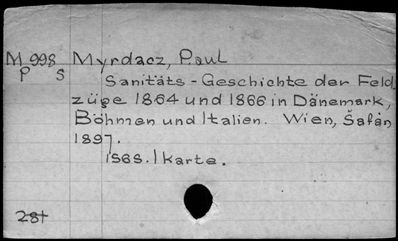 M 998 Myrdacz, Paul
P S Sanitäts-Geschichte der Feld
züge 1864 und 1866 in Dänemark,
Böhmen und Italien. Wien, Šafán
1897.
156s. 1 karte.
281